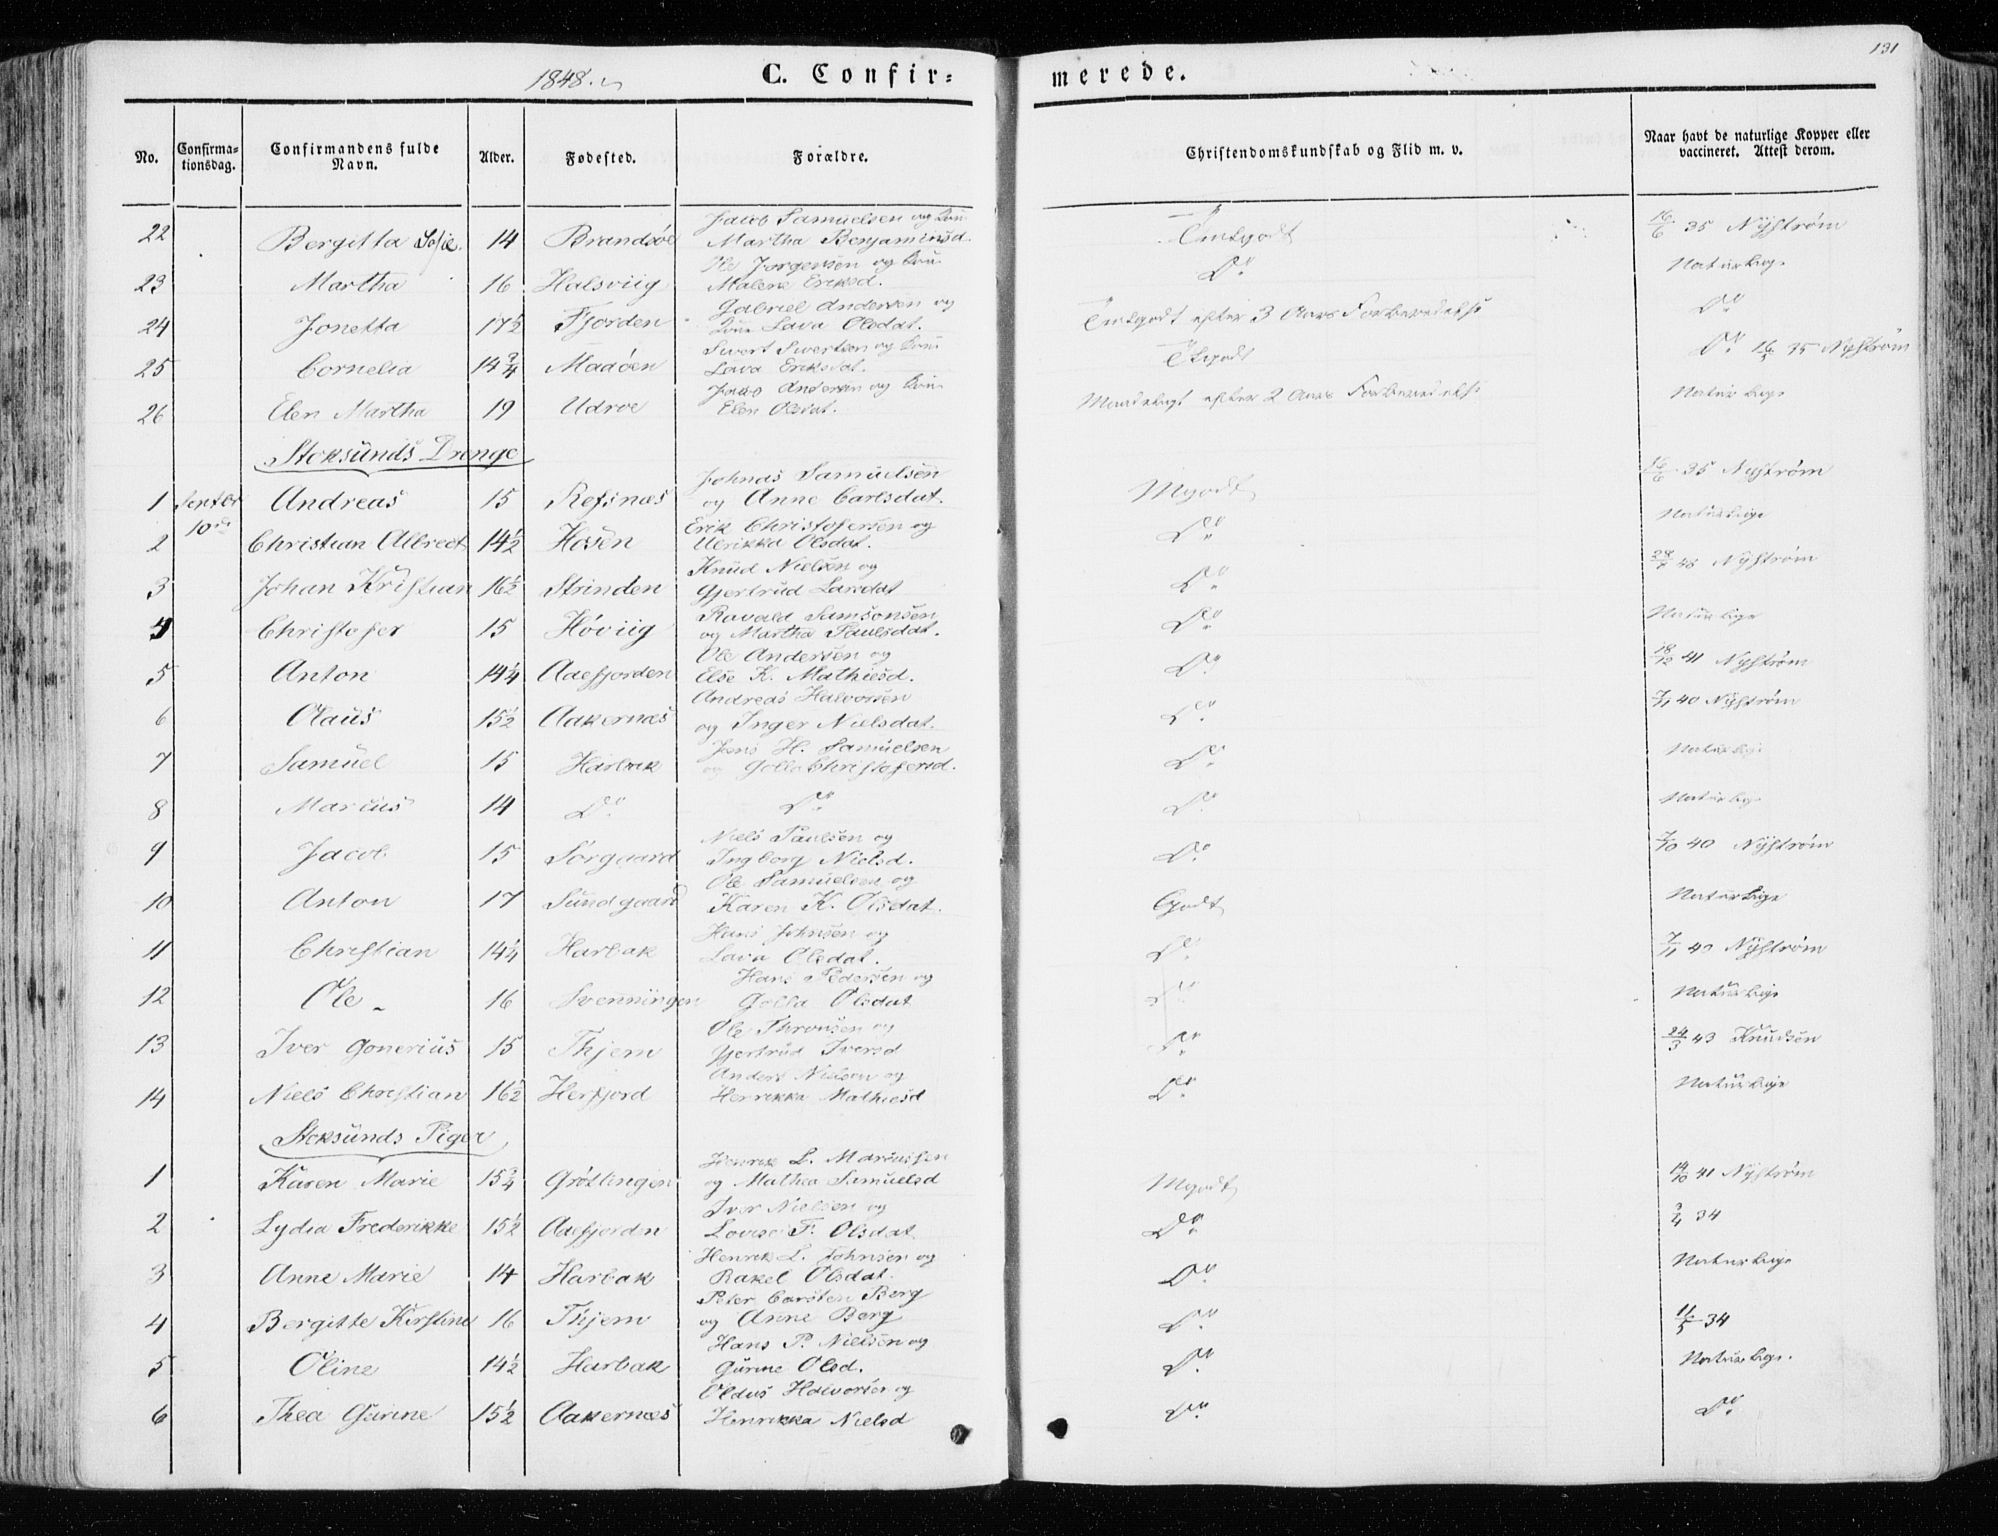 131
1848.
C. Confir=
merede.
No. Confirmationsdag. Confirmandens fulde Navn. Alder. Fødested. Forældre. Christendomskundskab og Flid m. v. Naar havt de naturlige Kopper eller vaccineret. Attest derom.
22 Bergitta Sofie. 14 Brandsøe Jacob Samuelsen og Martha Benjaminsd. 16/6 35 Nyström
23 Martha 16 Halsviig Ole Jørgensen og Malene Eriksd. Do Naturlige
24 Jonetta 17½ Fjorden Gabriel Andersen og Lava Olsdat. efter 3 Aars Forberedelse Do
25 Cornelia 14¾ Madøen Sivert Sivertsen og Lava Eriksdat. Do 35 Nyström
26 Elen Martha 19 Udroe Jacob Andersen og Elen Olsdat. Maadeligt efter 2 Aars Forberedelse Naturlige
Stoksunds Drenge
1 Septbr 10de Andreas 15 Refsnæs Johnas Samuelsen og Anne Carlsdat. Mgodt 16/6 35 Nyström
2 Christian Albrect 14½ Hosen Erik Christofersen og Ulrikka Olsdat. Do Naturlige
3 Johan Kristian 16½ Strinden Knud Nielsen og Gjertrud Larsdat Do 48 Nyström
4 Christofer 15 Høviig Ravald Samsonsen og Martha Paulsdat. Do Naturlige
5 Anton 14¼ Aaefjorden Ole Andersen og Else K. Mathiesd. Do 18/12 41 Nyström
6 Olaus 15½ Aakernæs Andreas Halvorsen og Inger Nielsdat. Do 7/11 40 Nyström
7 Samuel 15 Harbak Jens H. Samuelsen og Golla Christofersd. Do Naturlige
8 Marcus 14 Do Do Do Naturlige
9 Jacob 15 Sørgaard Niels Paulsen og Ingborg Nielsd. Do 7/10 40 Nyström
10 Anton 17 Sundgaard Ole Samuelsen og Karen K. Olsdat. Godt Naturlige
11 Christian 14¼ Harbak Hans Johnsen og Lava Olsdat. Do 7/11 40 Nyström
12 Ole 16 Svenningen Hans Pedersen og Golla Olsdat Do Naturlige
13 Iver Gonerius 15 Thjem Ole Thronsen og Gjertrud Iversd Do 24/3 43 Knudsen
14 Niels Christian 16½ Herfjord Anders Nielsen og Henrikka Mathiesd Do Naturlige
Stoksunds Piger
1 Karen Marie 15¾ Grøttingen Henrik L. Marcussen og Mathea Samuelsd Mgodt 14/10 41 Nyström
2 Lydia Frederikke 15½ Aaefjorden Iver Nielsen og Lovise F. Olsdat. Do 34
3 Anne Marie 14 Harbak Henrik L. Johnsen og Rakel Olsdat. Do Naturlige
4 Bergitte Kirstine 16 Thjem Peter Carsten Berg og Anne Berg Do 34
5 Oline 14½ Harbak Hans P. Nielsen og Gurine Olsd. Do Naturlige.
6 Thea Gurine 15½ Aakernæs Olaus Halvorsen og Henrikka Nielsd Do Do